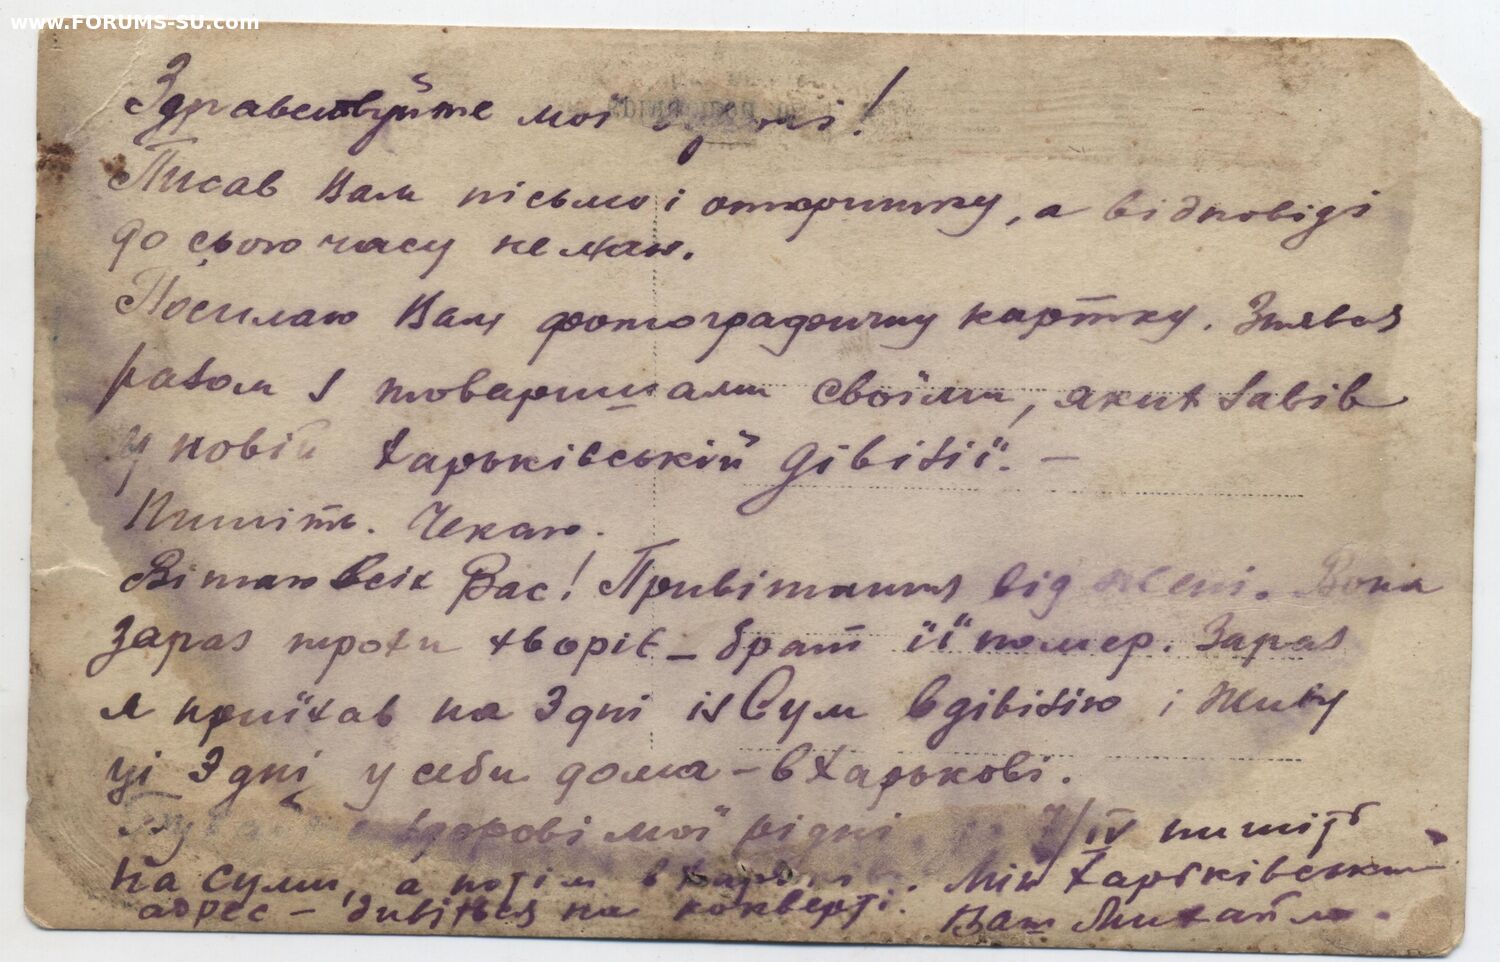 www.FORUMS-SU.com
Здравствуйте мої !
Писав Вам пісьмо і открытку, а відповіді
до сього часу не маю.
Посилаю Вам фотографичну картку. Знявся
разом з товаришами своїми, яких завів
у новій Харьківській дівізії. —
Пишіть. Чекаю.
Вітаю всіх Вас! Привітання від жені. Вона
зараз трохи хворіє – брат її помер. Зараз
я приїхав на 3 дні із Сум в дівізію і живу
ці 3 дні у себе дома – в Харькові.
здорові мої рідні. 7/IV пишіть
на Суми, а потім в Харьків. Мій Харьківський
адрес – дивіться на конверті. Ваш Михайло.